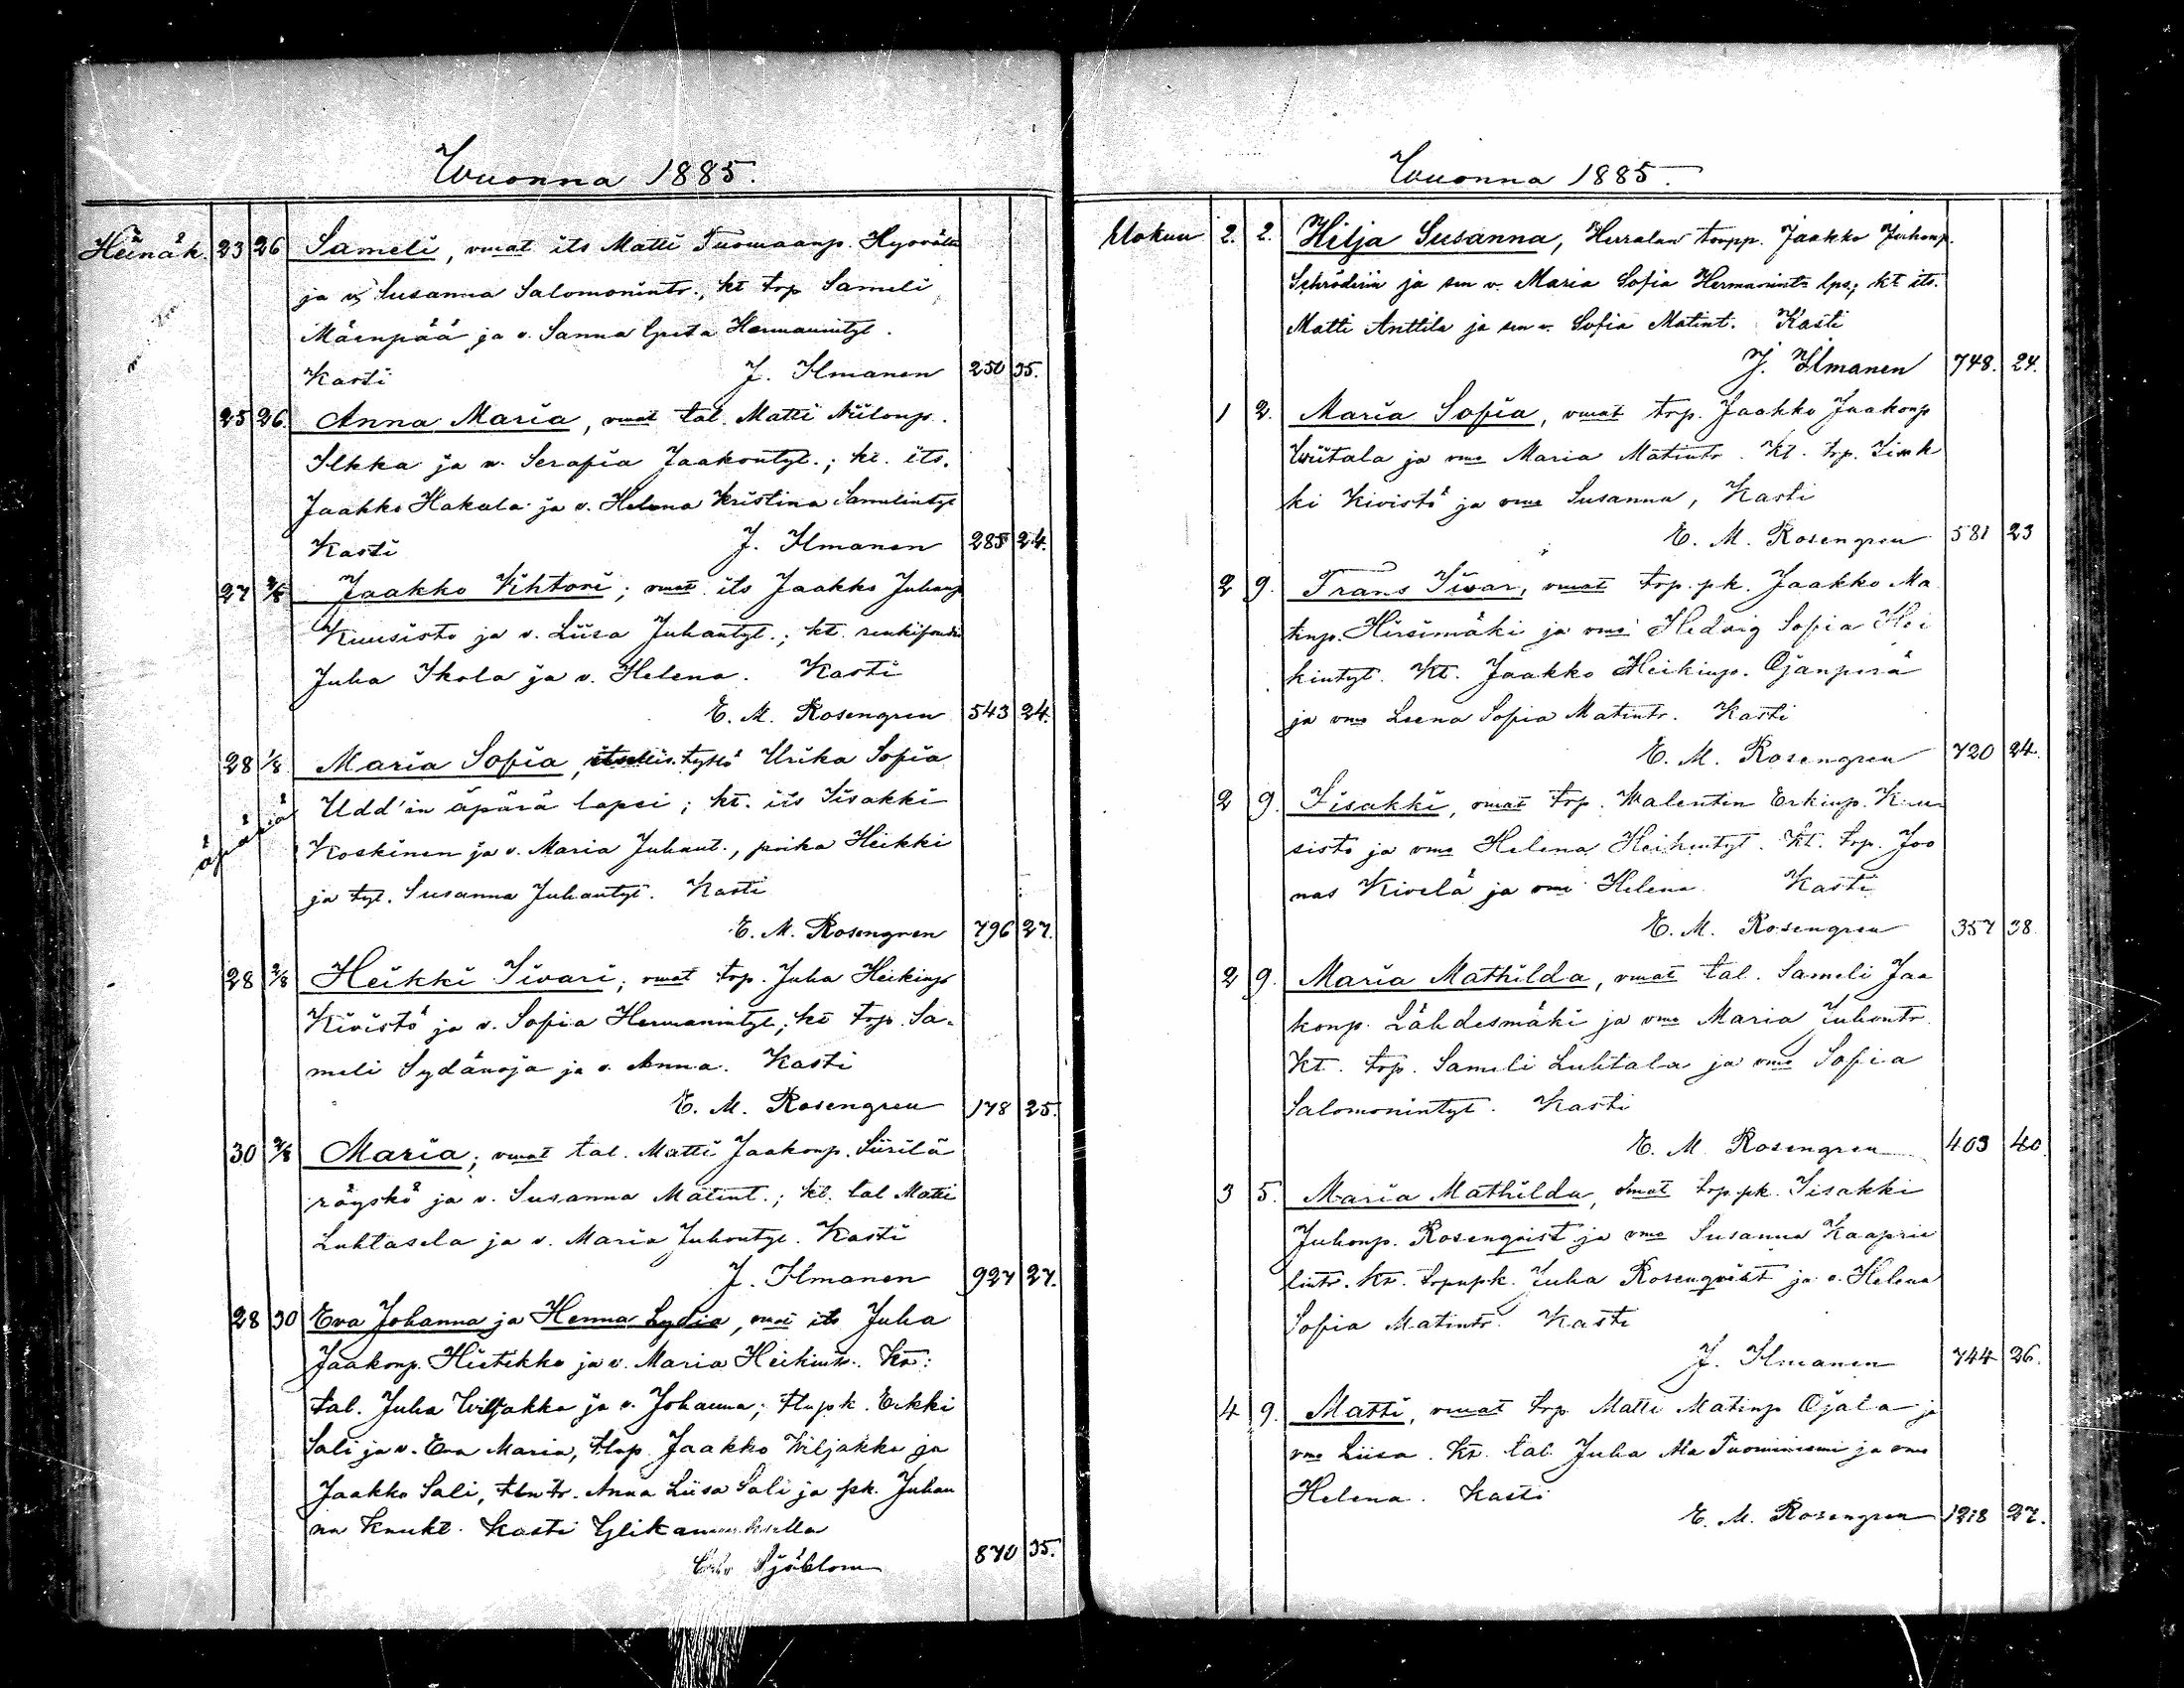 Wuonna 1885.
Heinäk. 23 26 Sameli, vmat its Matti Tuomaanp. Hyövälti
ja v. Susanna Salomonintr., kt trp Sameli
Mäenpää ja v. Sanna Greta Hermannityt.
Kasti J. Ilmanen 250 35.
25 26. Anna Maria, vmat tal. Matti Niilonp.
Ilkka ja v. Serafia Jaakontyt.; kt. its.
Jaakko Hakala ja v. Helena Kristina Samulintyt
Kasti J. Ilmanen 285 24.
27 2/8 Jaakko Vihtori; vmat its Jaakko Juhanp
Kuusisto ja v. Liisa Juhantyt.; kt.
Juha Ikola ja v. Helena. Kasti
E. M. Rosengren 543 24.
28 1/8 Maria Sofia, itsellis. tyttö Ulrika Sofia
äpärä Udd'in äpärä lapsi; kt. its Iisakki
Koskinen ja v. Maria Juhant., poika Heikki
ja tyt. Susanna Juhantyt. Kasti
E. M. Rosengren 796 27.
28 2/8 Heikki Iivari; vmat trp. Juha Heikinp
Kivistö ja v. Sofia Hermanintyt; kt trp. Sa-
meli Sydänoja ja v. Anna. Kasti
E. M. Rosengren 178 25.
30 2/8 Maria; vmat tal. Matti Jaakonp. Siirilä
röyskö ja v. Susanna Matint.; kt. tal Matti
Luhtasela ja v. Maria Juhontyt. Kasti
J. Ilmanen 927 27.
28 30 Eva Johanna ja Henna Lydia, vmat its Juha
Jaakonp. Hietikko ja v. Maria Heikintr. Kt:
tal. Juha Wiljakka ja v. Johanna; tlnpk. Erkki
Sali ja v. Eva Maria, tlnp. Jaakko Wiljakka ja
Jaakko Sali, tlntr. Anna Liisa Sali ja pk. Juhan
na Knukt. Kasti
Sjöblom 870 35.
Wuonna 1885.
Elokuu 2. 2. Hilja Susanna, Herralan torpp. Jaakko Juhonp.
Schröderin ja sen v. Maria Sofia Hermanintr lps; kt its.
Matti Anttila ja sen v. Sofia Matint. Kasti
J. Ilmanen 748. 24.
1 2. Maria Sofia, vmat trp. Jaakko Jaakonp
Wiitala ja vmo Maria Matintr. Kt. trp.
ki Kivistö ja vmo Susanna, Kasti
E. M. Rosengren 581 23
2 9. Frans Iivar, vmat trp. pk. Jaakko Ma
tinp. Hirsimäki ja vmo Hedvig Sofia Hei
kintyt. Kt. Jaakko Heikinp. Ojanperä
ja vmo Leena Sofia Matintr. Kasti
E. M. Rosengren 720 24.
2 9. Iisakki, vmat trp. Walentin Erkinp. Kuu
sisto ja vmo Helena Heikintyt. Kt. trp. Joo
nas Kivelä ja vmo Helena. Kasti
E. M. Rosengren 357 38.
2 9. Maria Mathilda, vmat tal. Sameli Jaa
konp. Lähdesmäki ja vmo Maria Juhontr.
Kt. trp. Sameli Luhtala ja vmo Sofia
Salomonintyt. Kasti
E. M. Rosengren 403 40
3 5. Maria Mathilda, vmat trp.pk. Iisakki
Juhonp. Rosenqvist ja vmo Susanna Kaaprie
lintr. Kt. trpnpk. Juha Rosenqvist ja v. Helena
Sofia Matintr. Kasti
J. Ilmanen 744 26.
4 9. Matti, vmat trp Matti Matinp Ojala ja
vmo Liisa. Kt. tal. Juha Ma Tuominiemi ja vmo
Helena. Kasti
E. M. Rosengren 1218 27.